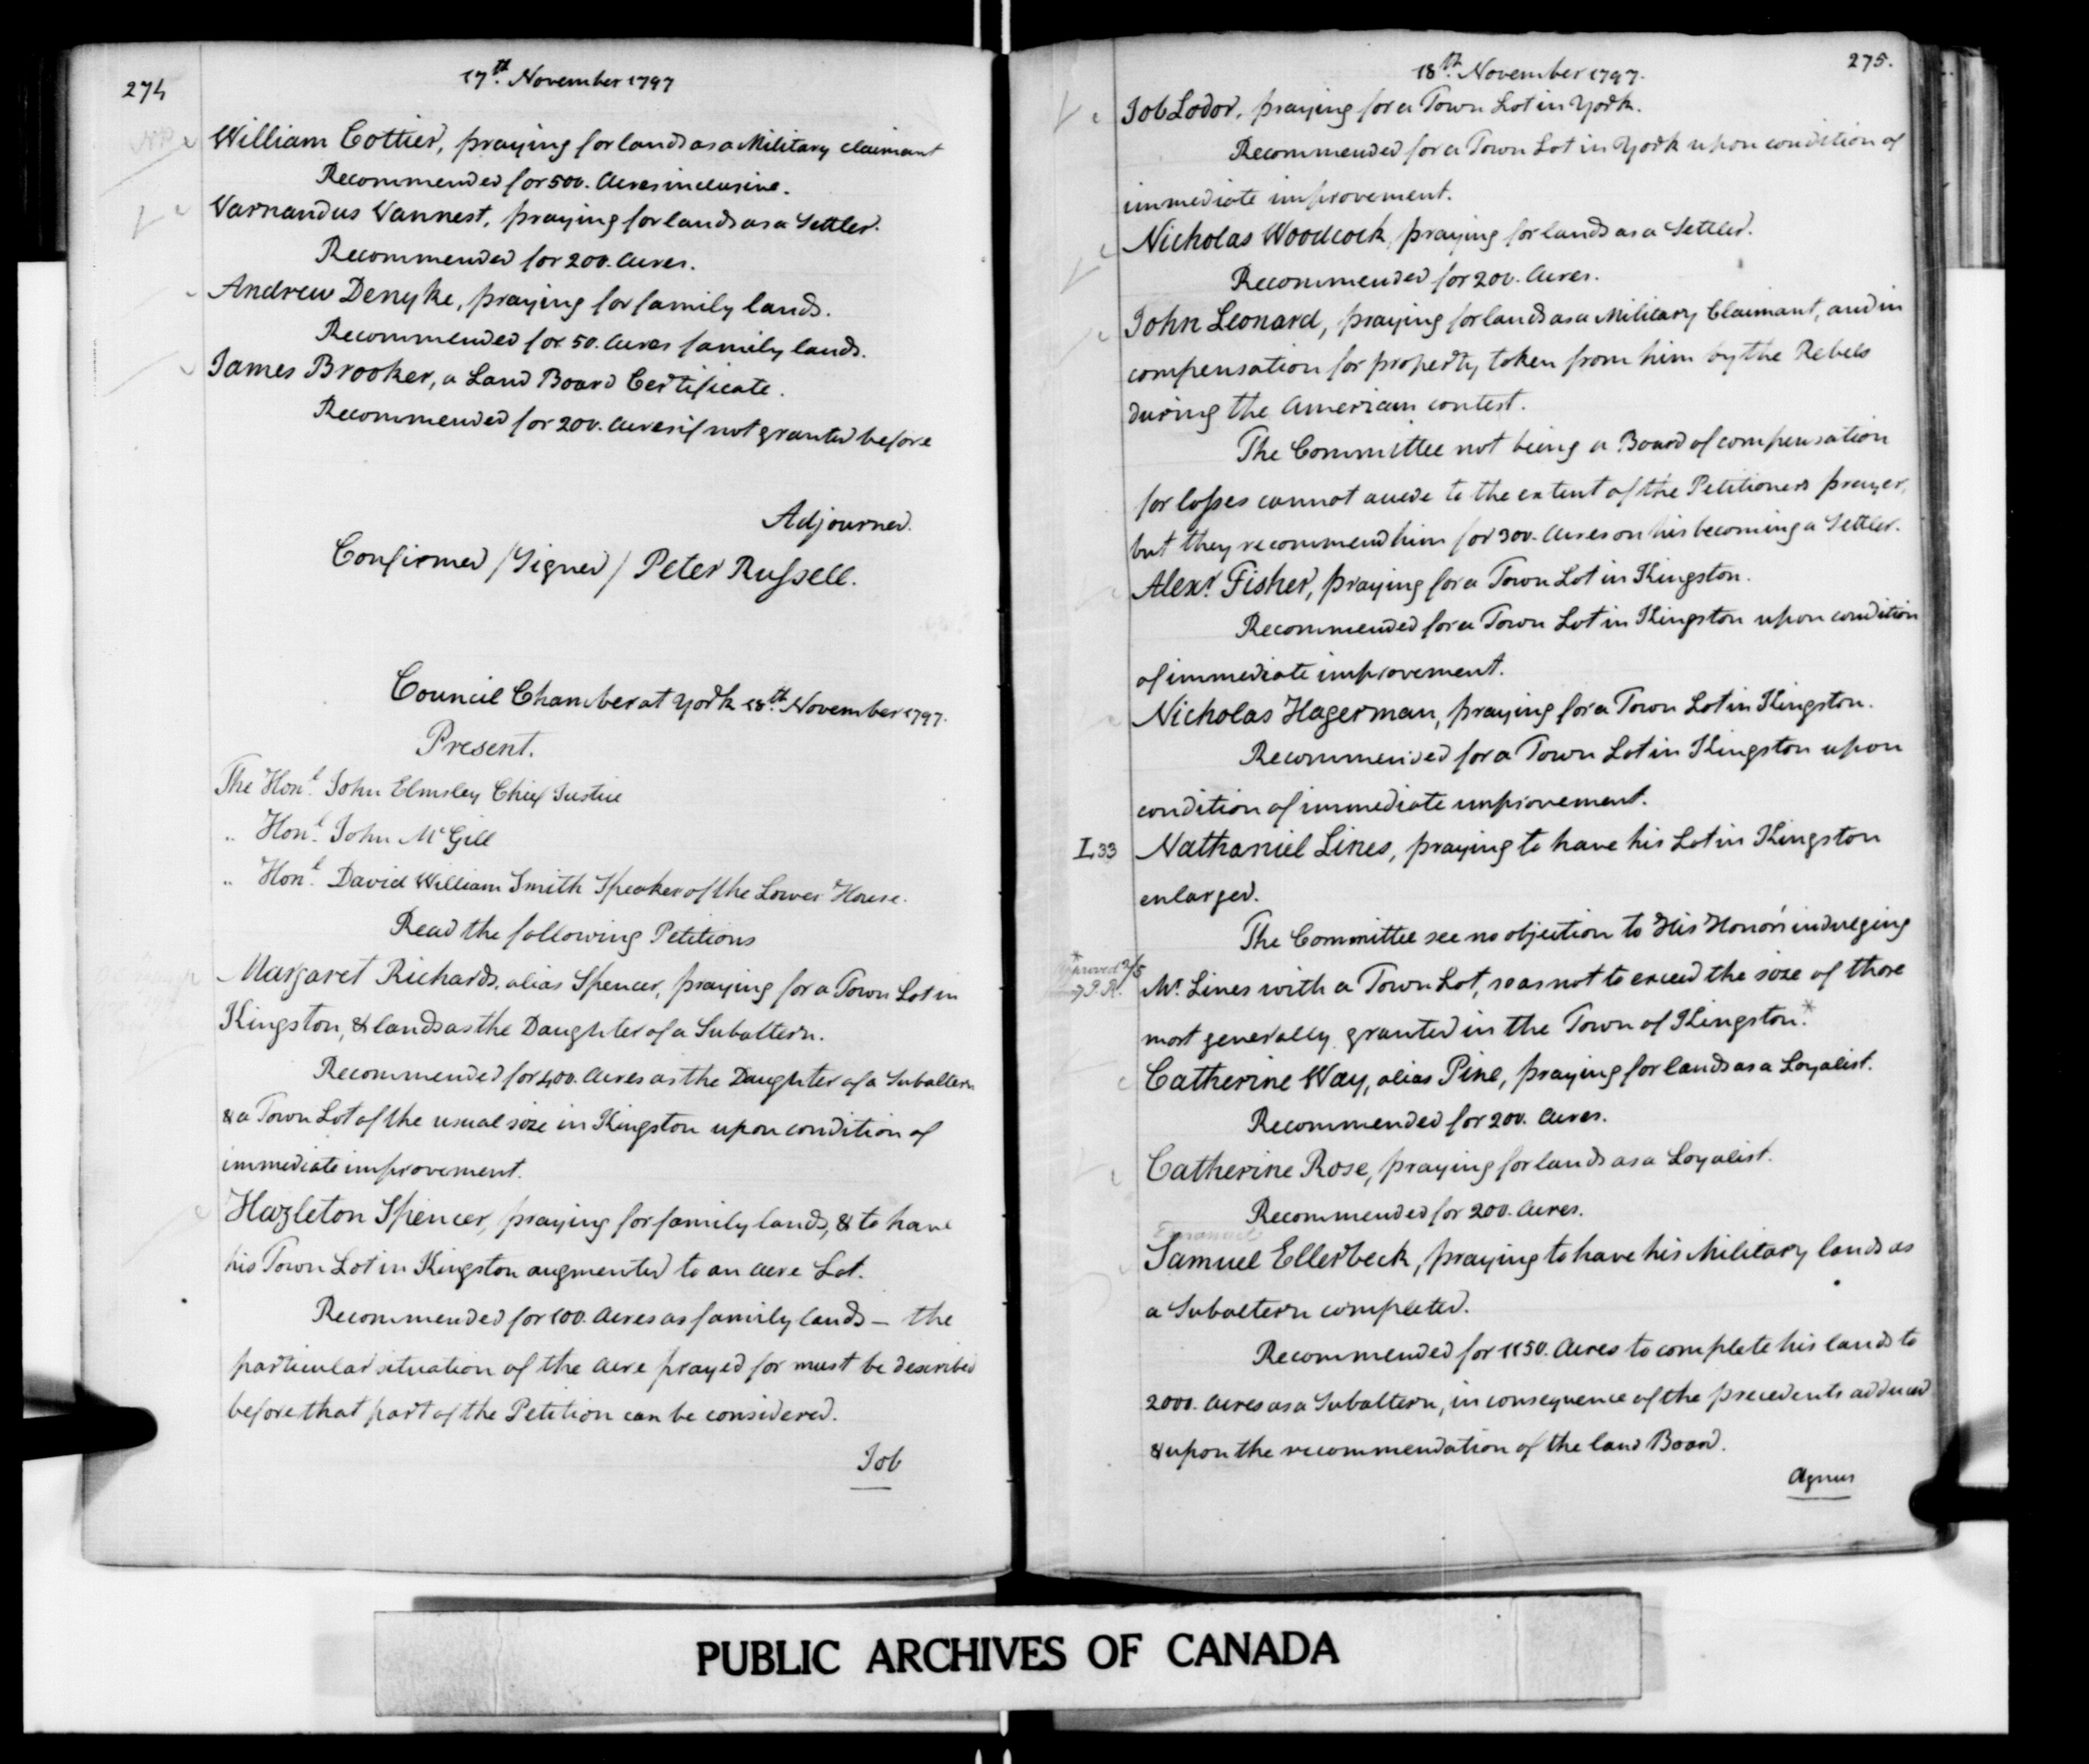 274
17th. November 1797
William Cottier, praying for lands as a Military claimant
Recommended for 500. Acres inclusive.
Varnandus Vannest, praying for lands as a Settler.
Recommended for 200. Acres.
Andrew Denyke, praying for family lands.
Recommended for 50. Acres family lands.
James Brooker, a Land Board Certificate.
Recommended for 200. Acres if not granted before
Adjourned.
Confirmed /Signed/ Peter Russell.
Council Chamber at York 18th. November 1797.
Present.
The Honl. John Elmsley Chief Justice
„ Honl. John McGill
„ Honl. David William Smith Speaker of the Lower House.
Read the following Petitions
Margaret Richards, alias Spencer, praying for a Town Lot in
Kingston, & lands as the Daughter of a Subaltern.
Recommended for 400. Acres as the Daughter of a Subaltern
& a Town Lot of the usual size in Kingston upon condition of
immediate improvement.
Hazleton Spencer, praying for family lands, & to have
his Town Lot in Kingston augmented to an Acre Lot.
Recommended for 100. Acres as family lands – the
particular situation of the Acre prayed for must be described
before that part of the Petition can be considered.
Job
275.
18th. November 1797.
Job Lodor, praying for a Town Lot in York.
Recommended for a Town Lot in York upon condition of
immediate improvement.
Nicholas Woodcock, praying for lands as a Settler.
Recommended for 200. Acres.
John Leonard, praying for lands as a Military Claimant, and in
compensation for property taken from him by the Rebels
during the American contest.
The Committee not being a Board of compensation
for losses cannot accede to the extent of the Petitioners prayer,
but they recommend him for 300. Acres on his becoming a Settler.
Alexr. Fisher, praying for a Town Lot in Kingston.
Recommended for a Town Lot in Kingston upon condition
of immediate improvement.
Nicholas Hagerman, praying for a Town Lot in Kingston.
Recommended for a Town Lot in Kingston upon
condition of immediate improvement.
L 33 Nathaniel Lines, praying to have his Lot in Kingston
enlarged.
The Committee see no objection to His Honor's indulging
Mr. Lines with a Town Lot, so as not to exceed the size of those
P.R.
most generally granted in the Town of Kingston.*
Catherine Way, alias Pine, praying for lands as a Loyalist.
Recommended for 200. Acres.
Catherine Rose, praying for lands as a Loyalist.
Recommended for 200. Acres.
Samuel Ellerbeck, praying to have his Military lands as
a Subaltern completed.
Recommended for 1150. Acres to complete his lands to
2000. Acres as a Subaltern, in consequence of the precedents adduced
& upon the recommendation of the land Board.
Agnus
PUBLIC ARCHIVES OF CANADA